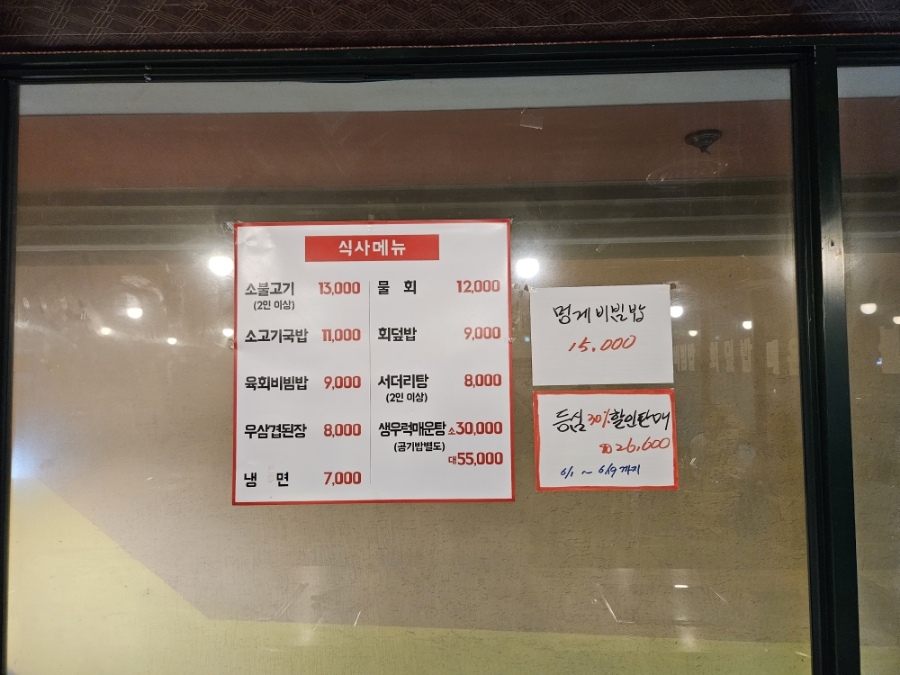 식사메뉴
소불고기 13,000
(2인 이상)
소고기국밥 11,000
육회비빔밥 9,000
우삼겹된장 8,000
냉 면 7,000
물 회 12,000
회덮밥 9,000
서더리탕 8,000
(2인 이상)
생우럭매운탕 소30,000
(공기밥별도)
대55,000
멍게비빔밥
15.000
등심 30% 할인판매
26,600
6/1 ~ 6/9까지